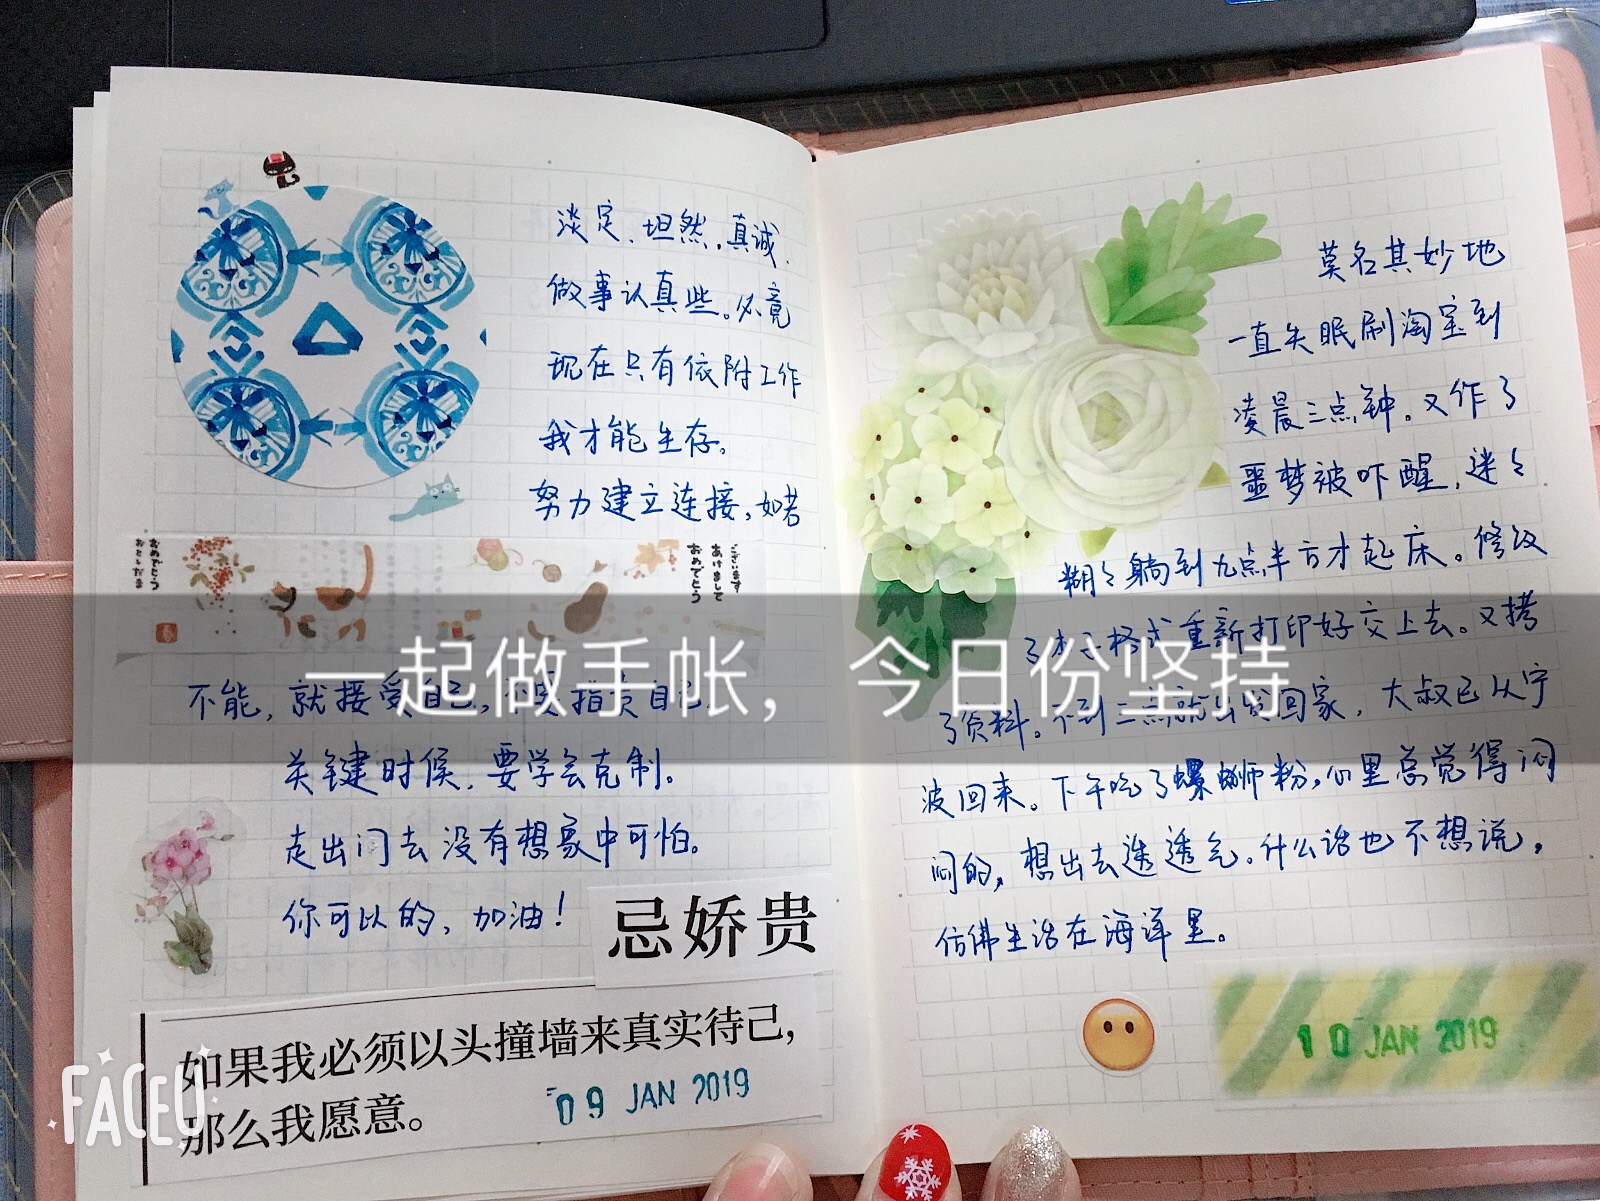 淡定、坦然,真诚.
做事认真些。必竟
现在只有依附工作
我才能生存。
努力建立连接,如若
おめでとう
おとしだま
ございます
あけまして
おめでとう
不能,就接受自己,不要指责自己.
关键时候,要学会克制。
走出门去没有想象中可怕。
你可以的,加油!
忌娇贵
如果我必须以头撞墙来真实待己,
那么我愿意。
09 JAN 2019
莫名其妙地
一直失眠刷淘宝到
凌晨三点钟。又作了
噩梦被吓醒,迷々
糊々躺到九点半方才起床。修改
了 格式重新打印好交上去。又拷
了资料。不到三点就出发回家,大叔已从宁
波回来。下午吃了螺蛳粉,心里总觉得闷
闷的,想出去透透气。什么话也不想说,
仿佛生活在海洋里。
10 JAN 2019
一起做手帐,今日份坚持
FACEU